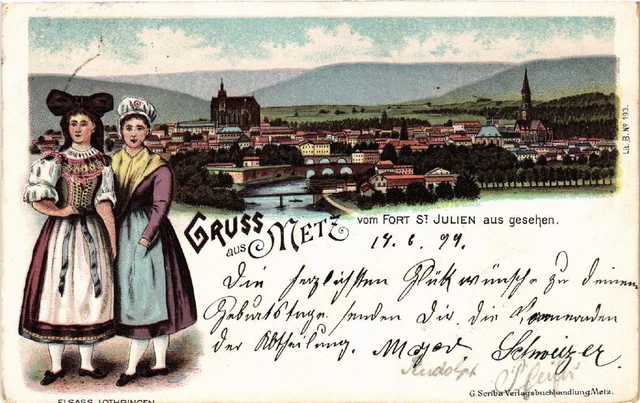 GRUSS aus METZ vom FORT ST JULIEN aus gesehen.
14. 6. 99.
Die herzlichsten Glückwünsche zu deinem
Geburtstage senden Dir, die Kameraden
der Abtheilung. Schweizer.
Rudolph
G. Scriba Verlagsbuchhandlung, Metz.
ELSASS LOTHRINGEN
Lit. B. No 193.